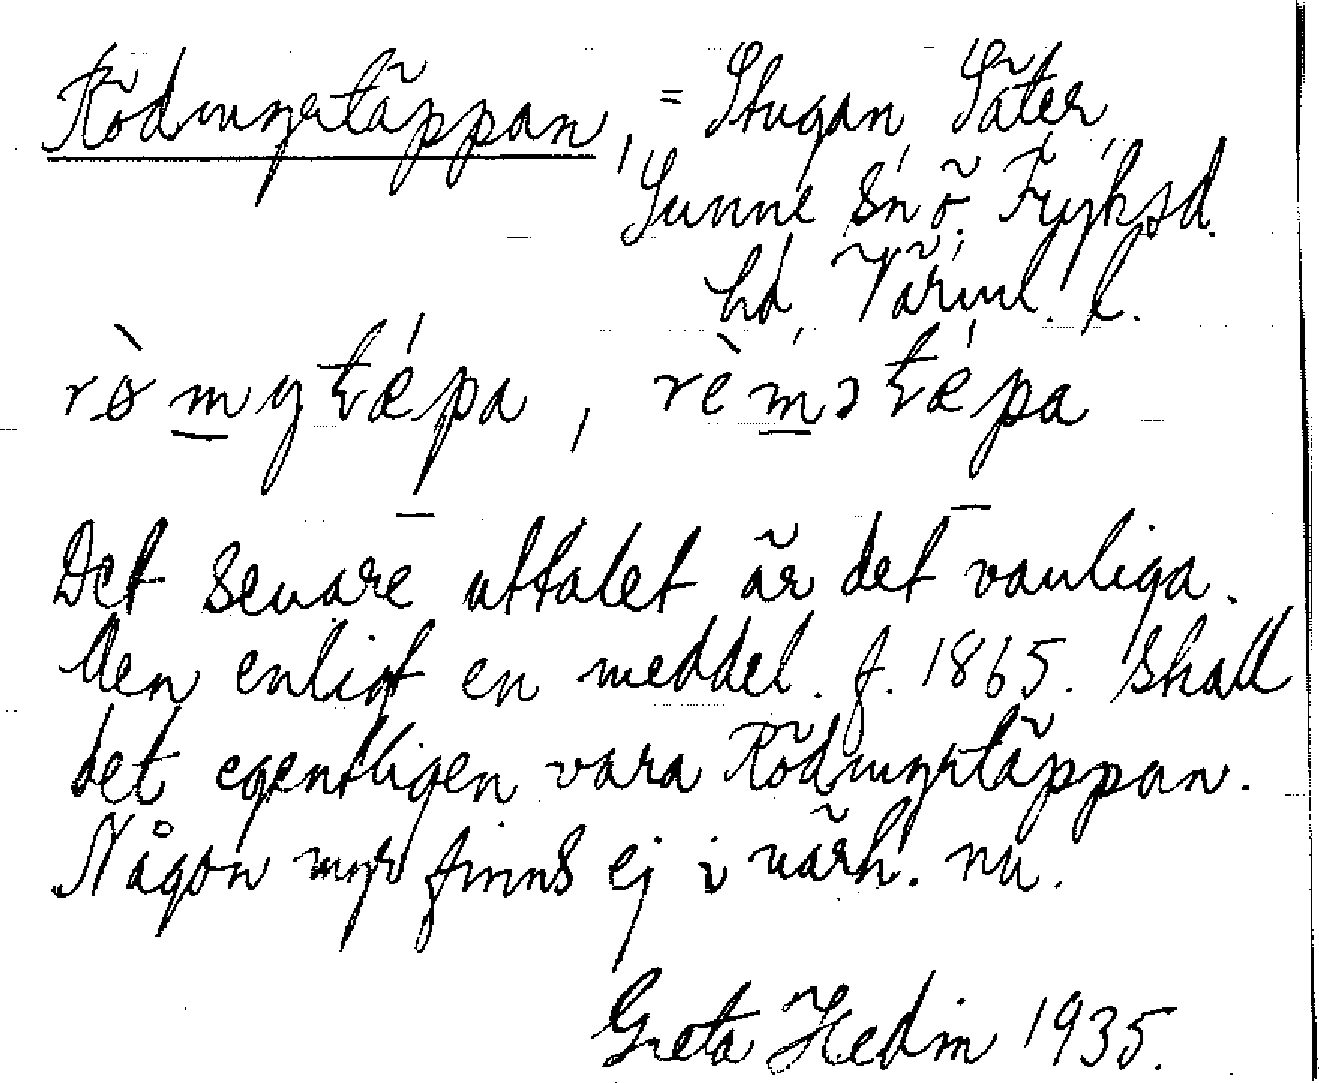 Rödmyrtäppan, = Stugan, Säter
Sunne sn ö. Fryksd.
hd, Värml. l.
rø̀mytǽpa, rèmətǽpa
Det senare uttalet är det vanliga.
Men enligt en meddel. f. 1865. skall
det egentligen vara Rödmyrtäppan.
Någon myr finns ej i närh. nu.
Greta Hedin 1935.